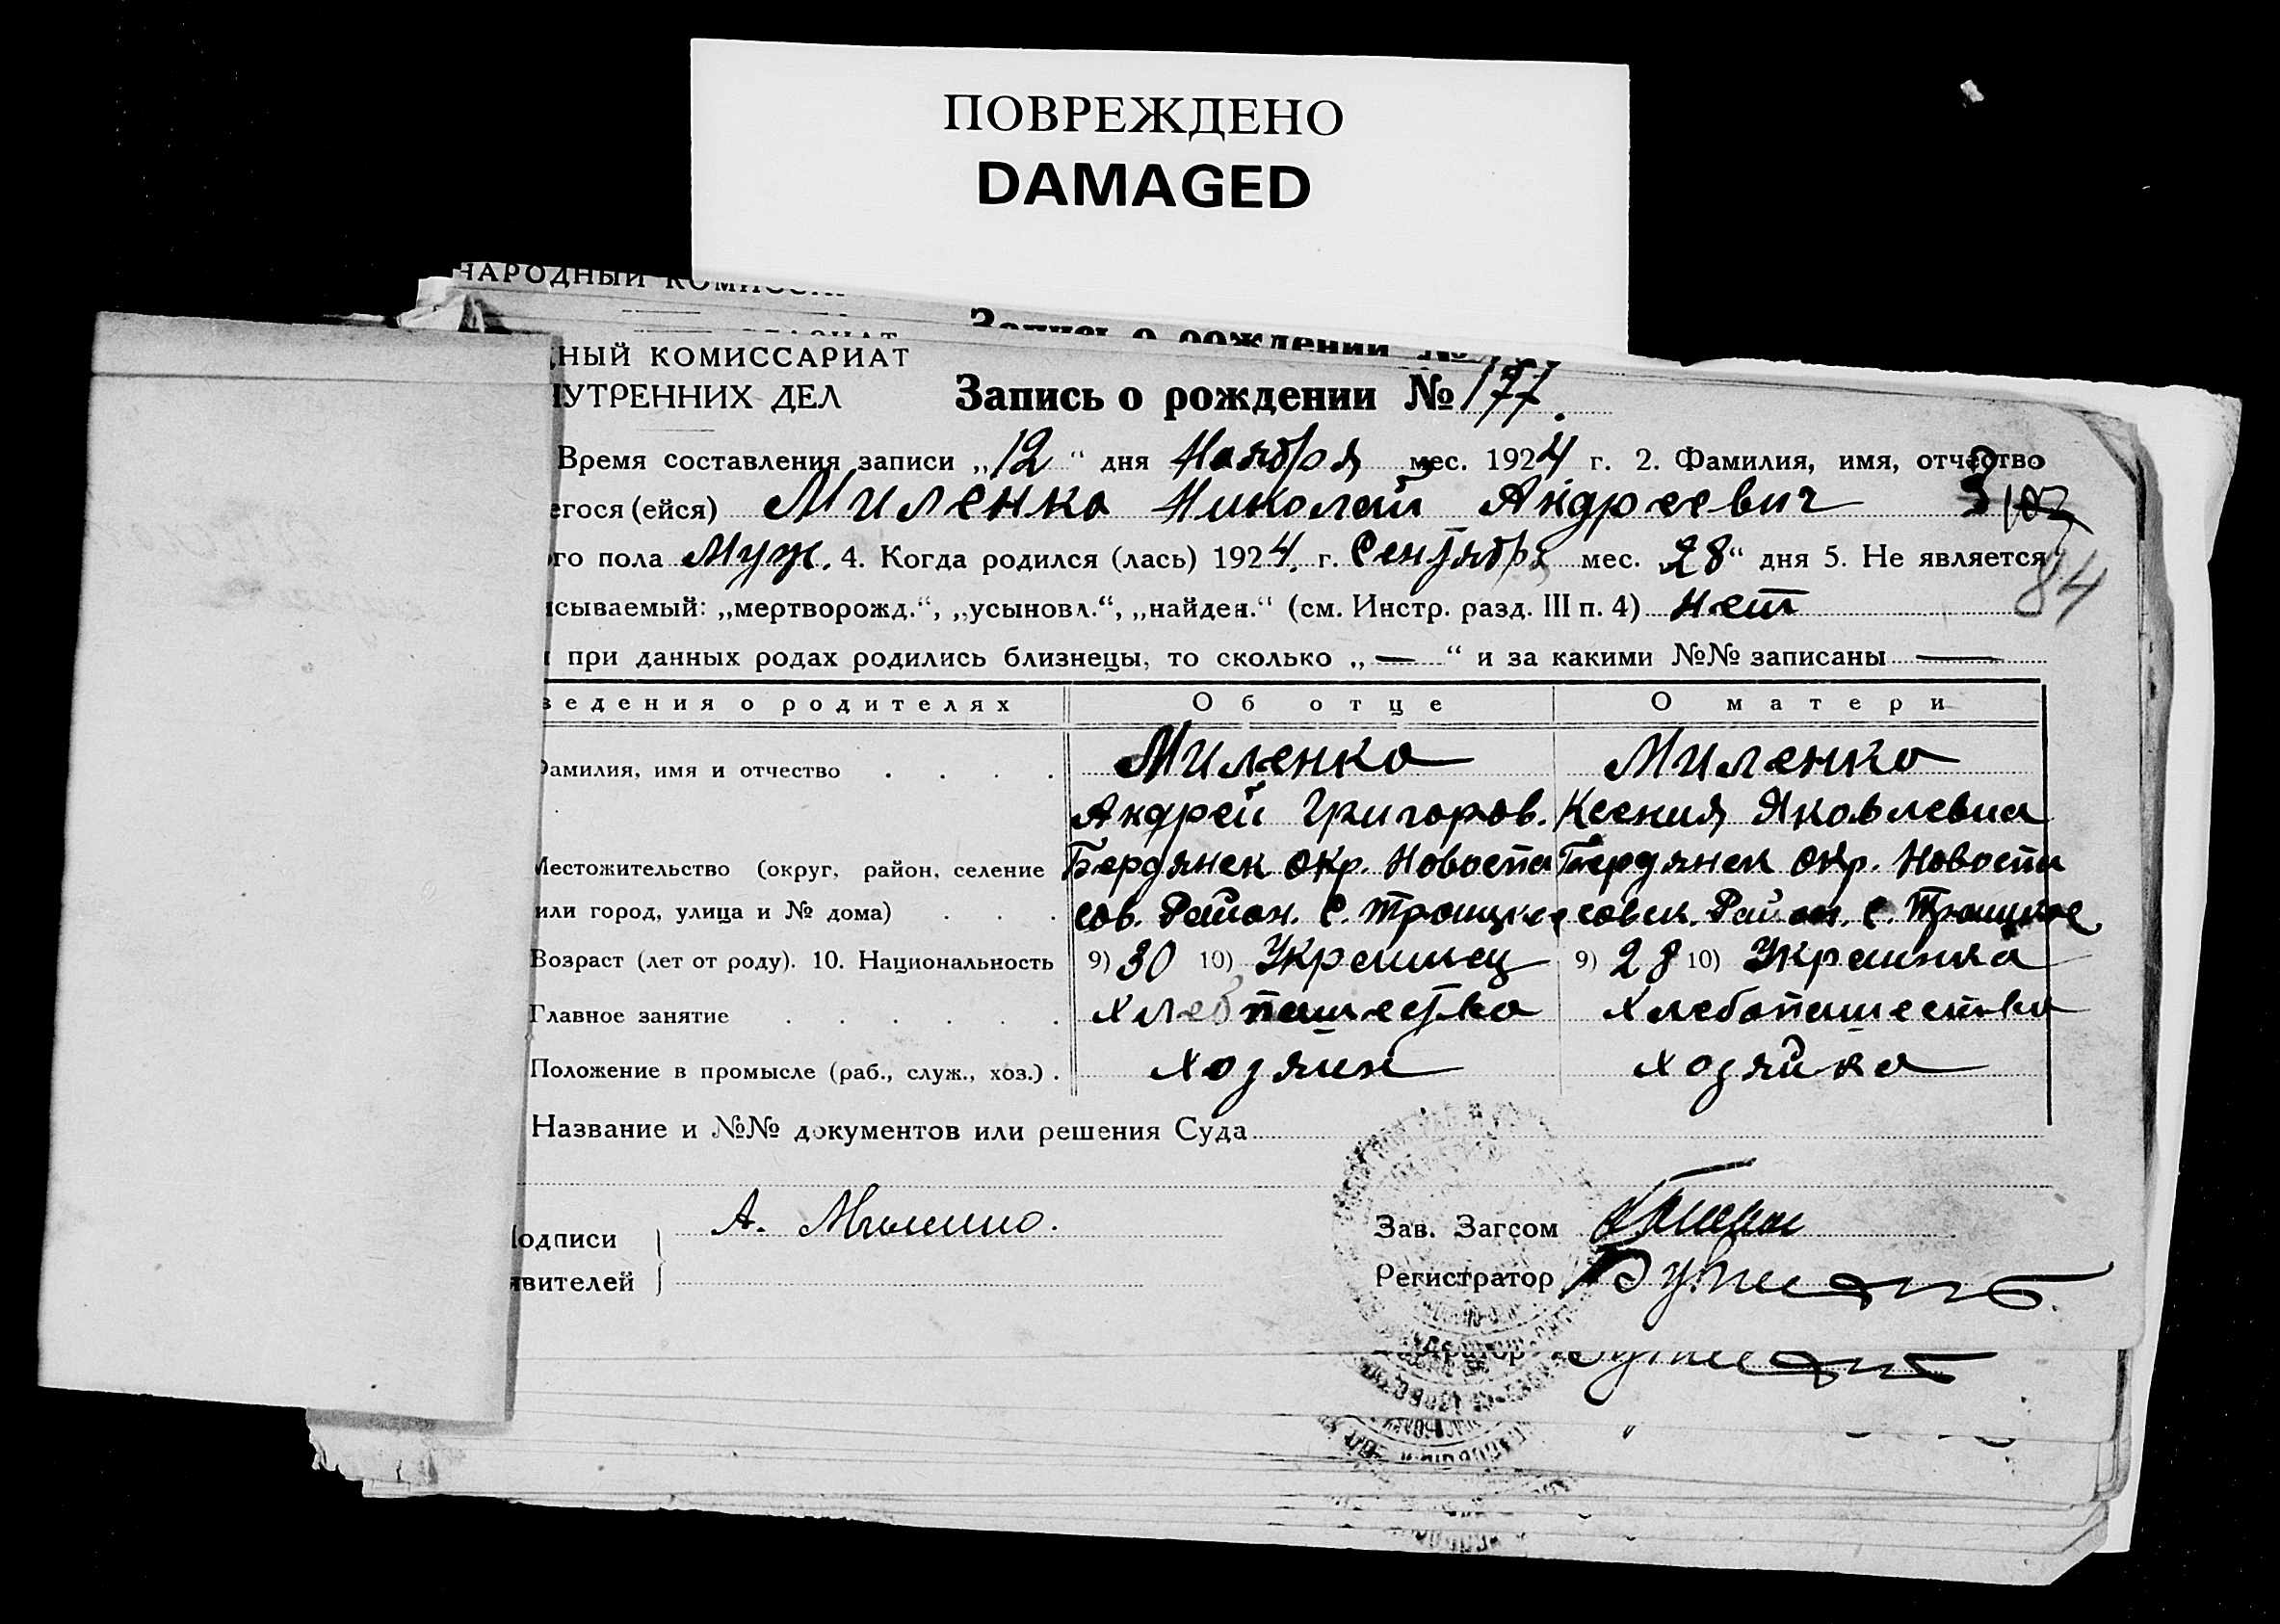 ПОВРЕЖДЕНО
DAMAGED
НАРОДНЫЙ
Запись о рождении №
НЫЙ КОМИССАРИАТ
УТРЕННИХ ДЕЛ
Запись о рождении № 177.
Время составления записи „12“ дня Ноября мес. 1924 г. 2. Фамилия, имя, отчество
егося (ейся) Миленко Николай Андреевич
го пола Муж. 4. Когда родился (лась) 1924. г. Сентября мес. „28“ дня 5. Не является
84
сываемый: „мертворожд.“, „усыновл.“, „найден.“ (см. Инстр. разд. III п. 4) нет
при данных родах родились близнецы, то сколько „—“ и за какими №№ записаны —
ведения о родителях Об отце О матери
Фамилия, имя и отчество . . . . Миленко Миленко
Андрей Григоров. Ксения Яковлевна
Местожительство (округ, район, селение Бердянск окр. Новоспа Бердянск окр. Новоспа
или город, улица и № дома) . . . сов. Район. с. Троицкое совск. Район. с. Троицкое
Возраст (лет от роду). 10. Национальность 9) 30 10) Украинец 9) 28 10) Украинка
Главное занятие . . . . . . Хлебопашество Хлебопашество
Положение в промысле (раб., служ., хоз.) . хозяин хозяйка
Название и №№ документов или решения Суда
одписи А. Миленко. Зав. Загсом
явителей Регистратор